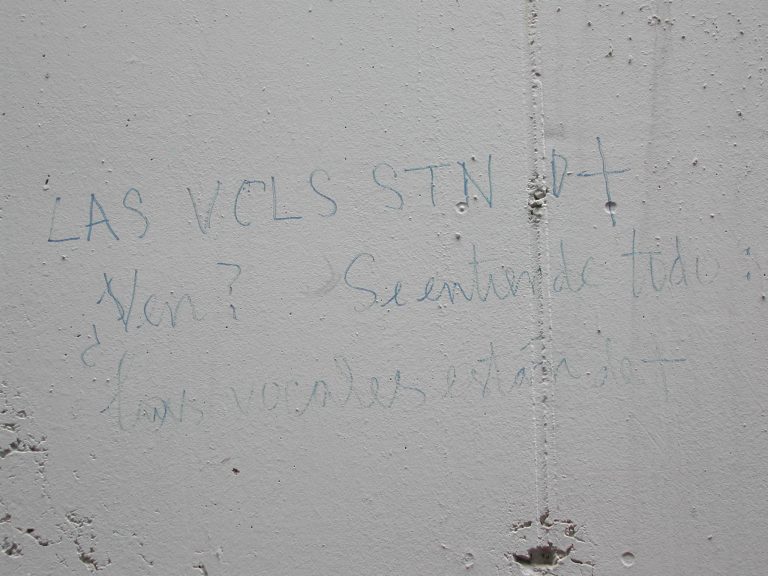 LAS VCLS STN D+
¿Ven? Se entiende todo:
las vocales están de +